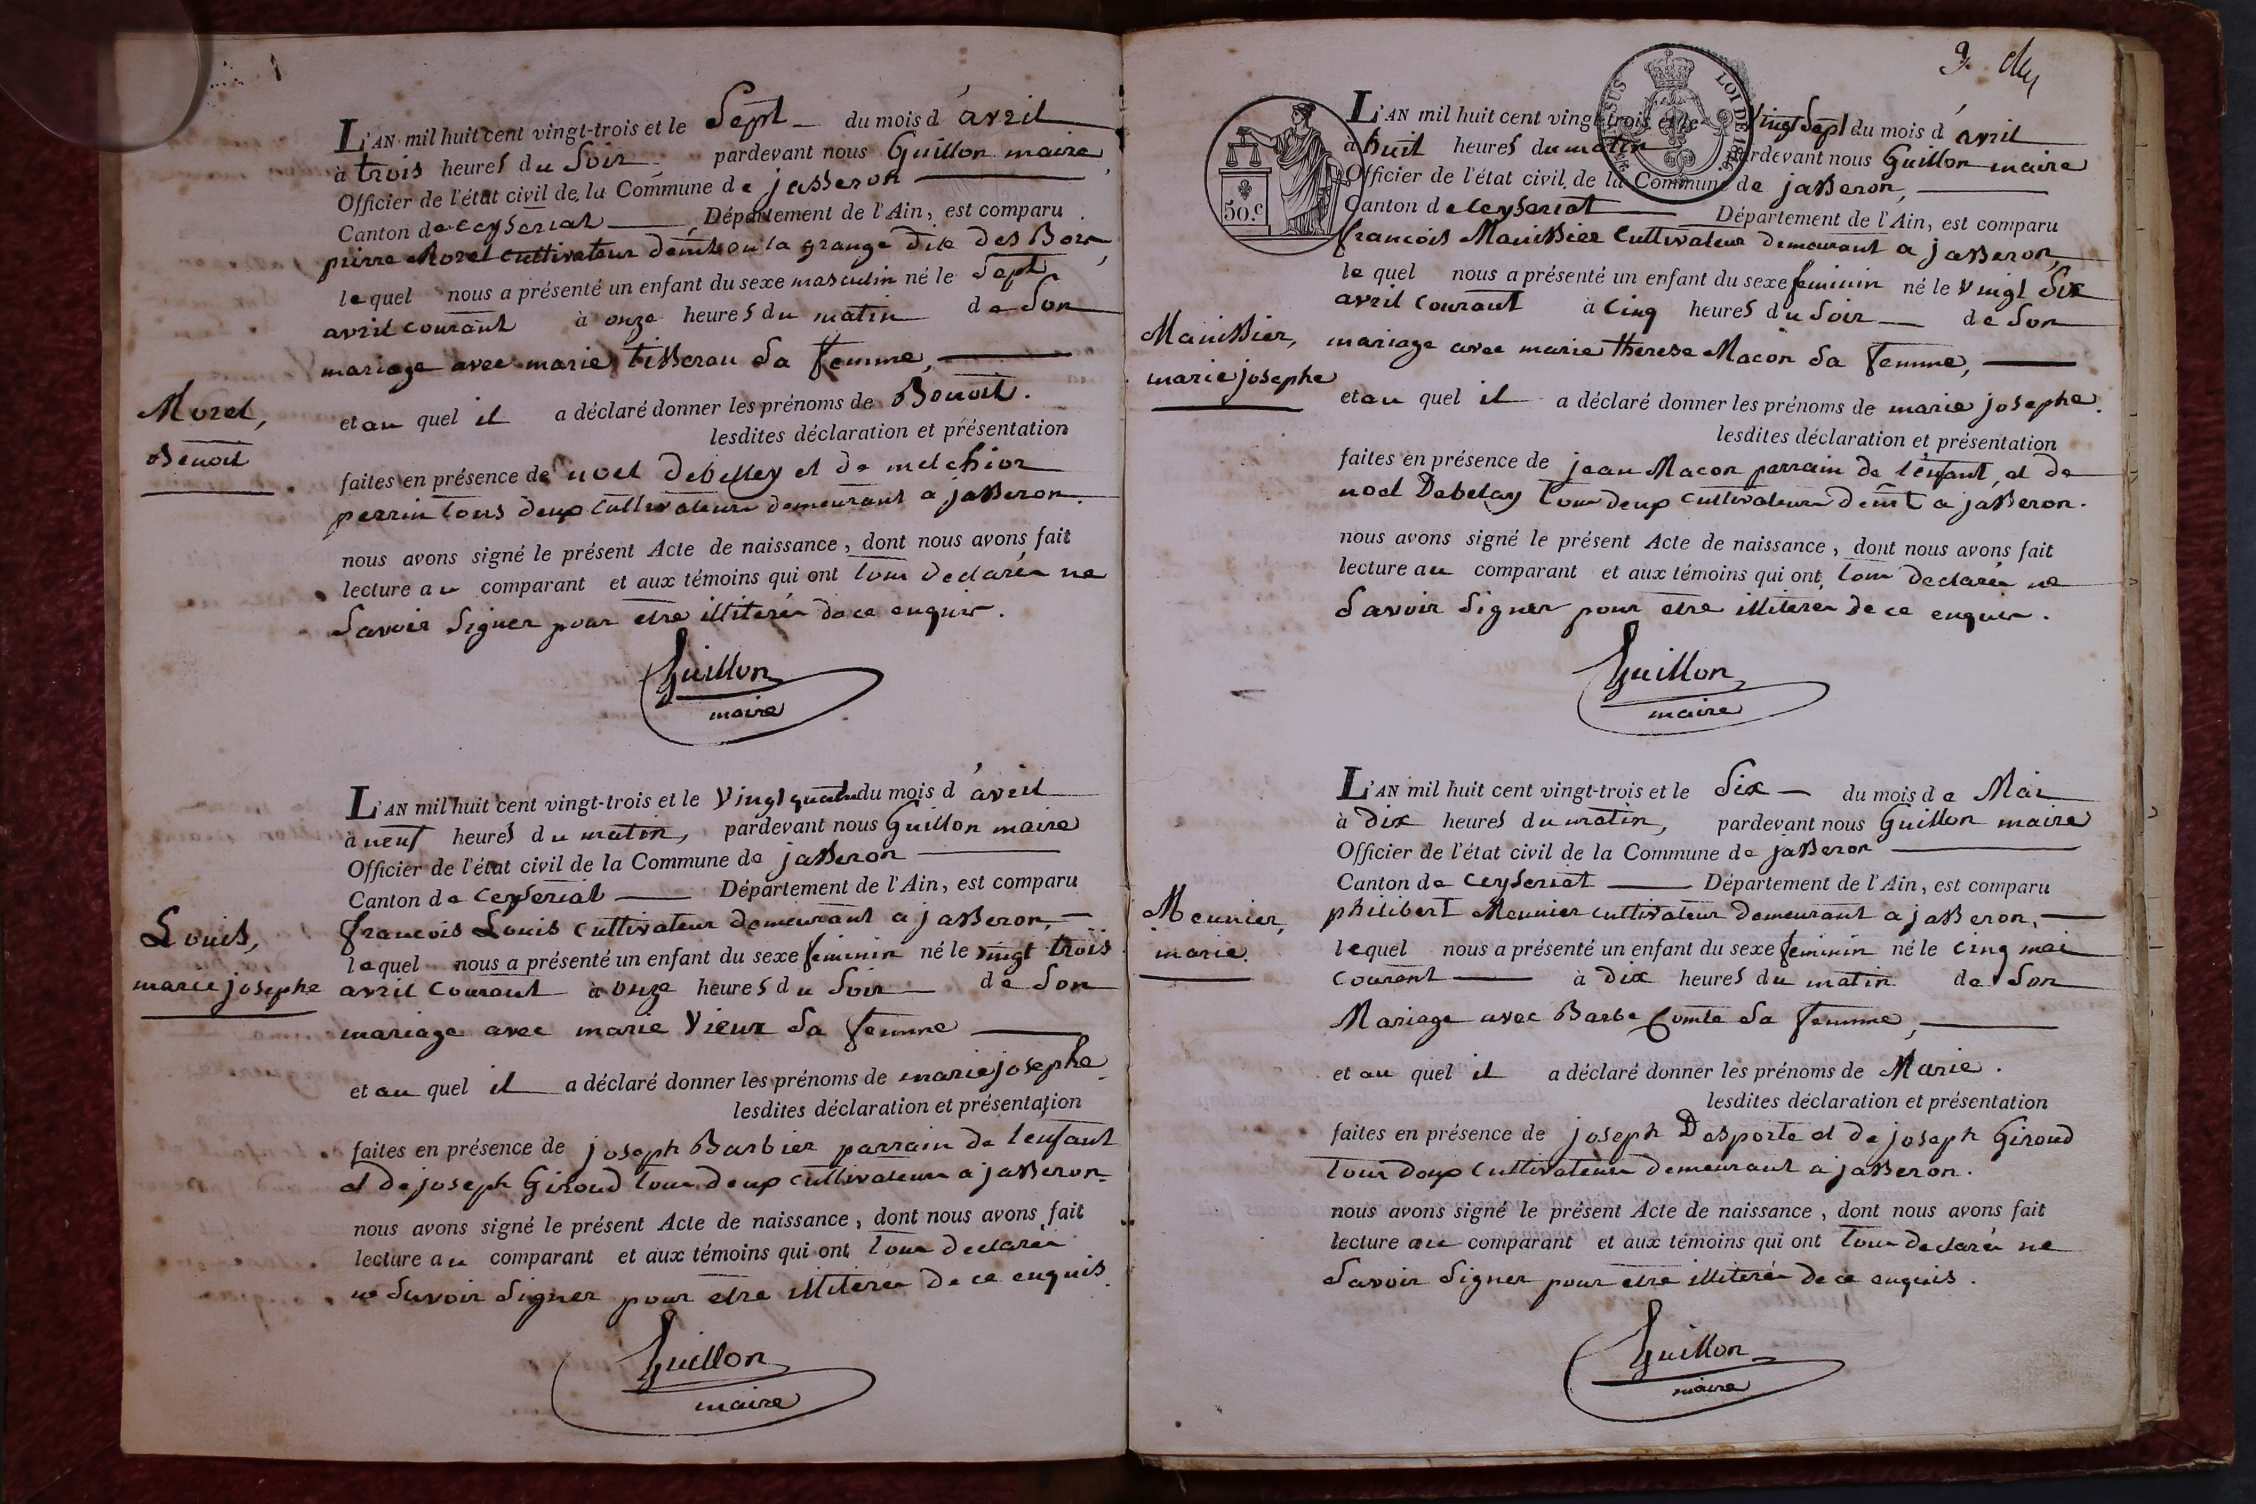 L'AN mil huit cent vingt-trois et le Sept du mois d'avril
à trois heures du Soir pardevant nous Guillon maire,
Officier de l'état civil de la Commune de jasseron
Canton de ceyseriat Département de l'Ain, est comparu
pierre Morel cultivateur a la grange dite des Bois,
le quel nous a présenté un enfant du sexe masculin né le Sept
avril courant à onze heures du matin de Son
mariage avec marie tisserau Sa femme,
Morel,
Benoit
et au quel il a déclaré donner les prénoms de Benoit.
lesdites déclaration et présentation
faites en présence de noel debelley et de melchior
perrin tous deux cultivateurs demeurant a jasseron.
nous avons signé le présent Acte de naissance, dont nous avons fait
lecture au comparant et aux témoins qui ont tous declarés ne
Savoir Signer pour etre illiterés de ce enquis.
Guillon
maire
L'AN mil huit cent vingt-trois et le Vingt quatre du mois d'avril
à neuf heures du matin, pardevant nous Guillon maire
Officier de l'état civil de la Commune de jasseron
Canton de ceyseriat Département de l'Ain, est comparu
francois Louis cultivateur demeurant a jasseron,
Louis,
marie josephe
lequel nous a présenté un enfant du sexe feminin né le vingt trois
avril courant à onze heures du Soir de Son
mariage avec marie Vieux Sa femme
et au quel il a déclaré donner les prénoms de marie josephe
lesdites déclaration et présentation
faites en présence de joseph Barbier parrain de l'enfant
et de joseph Giroud tous deux cultivateurs a jasseron
nous avons signé le présent Acte de naissance, dont nous avons fait
lecture au comparant et aux témoins qui ont tous declarés
ne Savoir Signer pour etre illiterés de ce enquis.
Guillon
maire
3.
50.c
LOI DE 1816
L'AN mil huit cent vingt-trois et le Vingt Sept du mois d'avril
à huit heures du matin pardevant nous Guillon maire
Officier de l'état civil de la Commune de jasseron,
Canton de ceyseriat Département de l'Ain, est comparu
francois Manissier cultivateur demeurant a jasseron,
le quel nous a présenté un enfant du sexe feminin né le vingt Six
avril courant à cinq heures du Soir de Son
Manissier,
marie josephe
mariage avec marie therese Macon Sa femme,
et au quel il a déclaré donner les prénoms de marie josephe.
lesdites déclaration et présentation
faites en présence de jean Macon parrain de l'enfant, et de
noel Debelay tous deux cultivateurs demt a jasseron.
nous avons signé le présent Acte de naissance, dont nous avons fait
lecture au comparant et aux témoins qui ont tous declarés ne
Savoir Signer pour etre illiterés de ce enquis.
Guillon
maire
L'AN mil huit cent vingt-trois et le Six du mois de Mai
à dix heures du matin, pardevant nous Guillon maire
Officier de l'état civil de la Commune de jasseron
Canton de ceyseriat Département de l'Ain, est comparu
philibert Meunier cultivateur demeurant a jasseron,
Meunier,
marie.
lequel nous a présenté un enfant du sexe feminin né le cinq mai
courant à dix heures du matin de Son
Mariage avec Barbe Comte Sa femme,
et au quel il a déclaré donner les prénoms de Marie.
lesdites déclaration et présentation
faites en présence de joseph Desporte et de joseph Giroud
tous deux cultivateurs demeurant a jasseron.
nous avons signé le présent Acte de naissance, dont nous avons fait
lecture au comparant et aux témoins qui ont tous declarés ne
Savoir Signer pour etre illiterés de ce enquis.
Guillon
maire